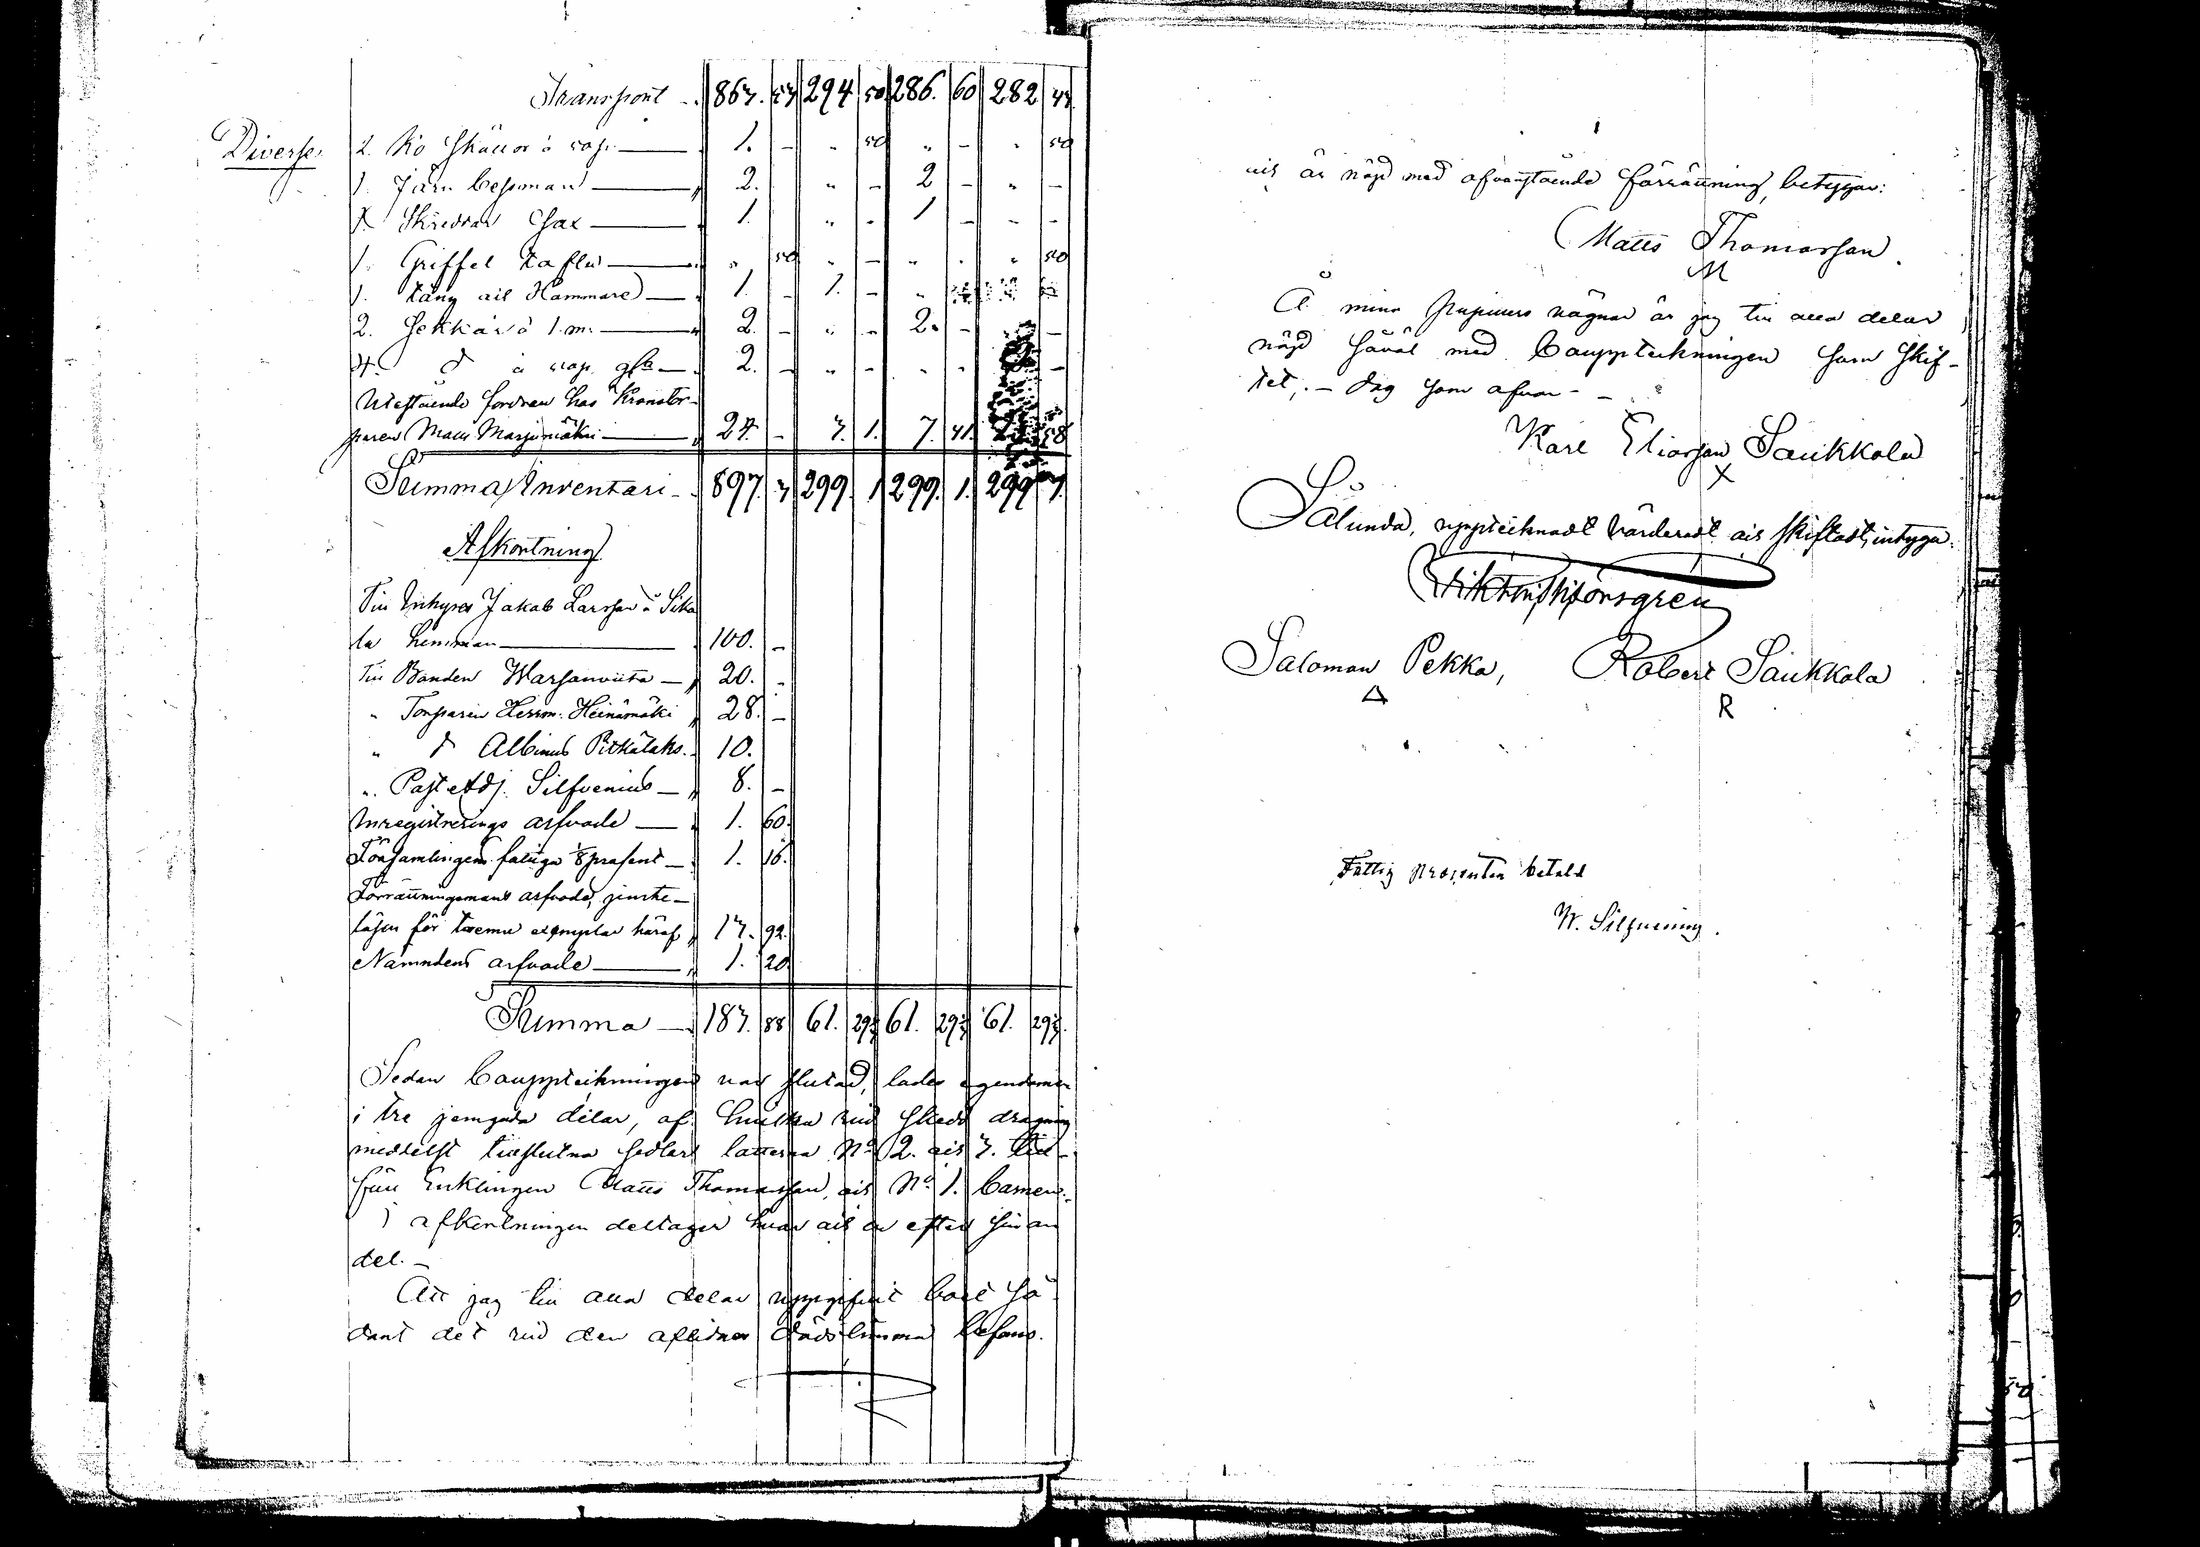 Transport 863. 57 294 50 286. 60 282 47
Diverse 2. Ko skällor à 50 p. 1. – „ 50 „ – „ 50
1. Järn besman 2. „ – 2 – „ –
1. Skreddar Sax 1. „ – 1 – „ –
1. Griffel tafla „ 50 „ – „ „ 50
1. tång och Hammare 1. – 1. –
2. Sekkar à 1.m. 2. – „ – 2. –
4. d à 50 p. 2. – „ –
Utestående fordran hos Kronotor-
paren Matts Marjomäki 27. – 3. 1. 7. 41. 58
Summa Inventari 897. 3 299. 1 299. 1. 299 1.
Afkortning
Till Inhyses Jakob Larsson å Sika
la hemman 100. –
Till Bonden Warsanviita 20. –
„ Torparen Herrm. Heinämäki 28. –
„ d Albinus Pitkälaks. 10.
„ Past. Adj. Silfvenius 8. –
Inregistrerings arfvode 1. 60.
Församlingens fattiga 1/8 prosent 1. 16.
Förrättningsmans arfvode, jemte
lösen för tvenne exemplar häraf 17. 92.
Nämndens arfvode 1. 20.
Summa 183. 88 61. 29⅓ 61. 29⅓ 61. 29⅓.
Sedan bouppteckningen var slutad, lades egendomen
i tre jemgoda delar, af hvilka vid skedd dragning
meddelst tillslutna sedlar lotterna No 2. och 3. till-
föll Enklingen Matts Thomasson, och No 1. barnen.
I afkortningen deltager hvar och en efter sin an
del. –
Att jag till alla delar uppgifvit boet så
dant det vid den aflidnes dödstimma befans.
och är nöjd med ofvanstående förrättning, betygar:
Matts Thomasson.
M
Å mina pupillers vägnar är jag till alla delar
nöjd såväl med bouppteckningen som skif-
tet; – Dag som ofvan –
Karl Eliasson Saukkola
X
Sålunda, upptecknadt värderadt och skiftadt, intyga:
Salomon Pekka, Robert Saukkola
Δ R
Fattig prosenten betald
W. Silfvenius.